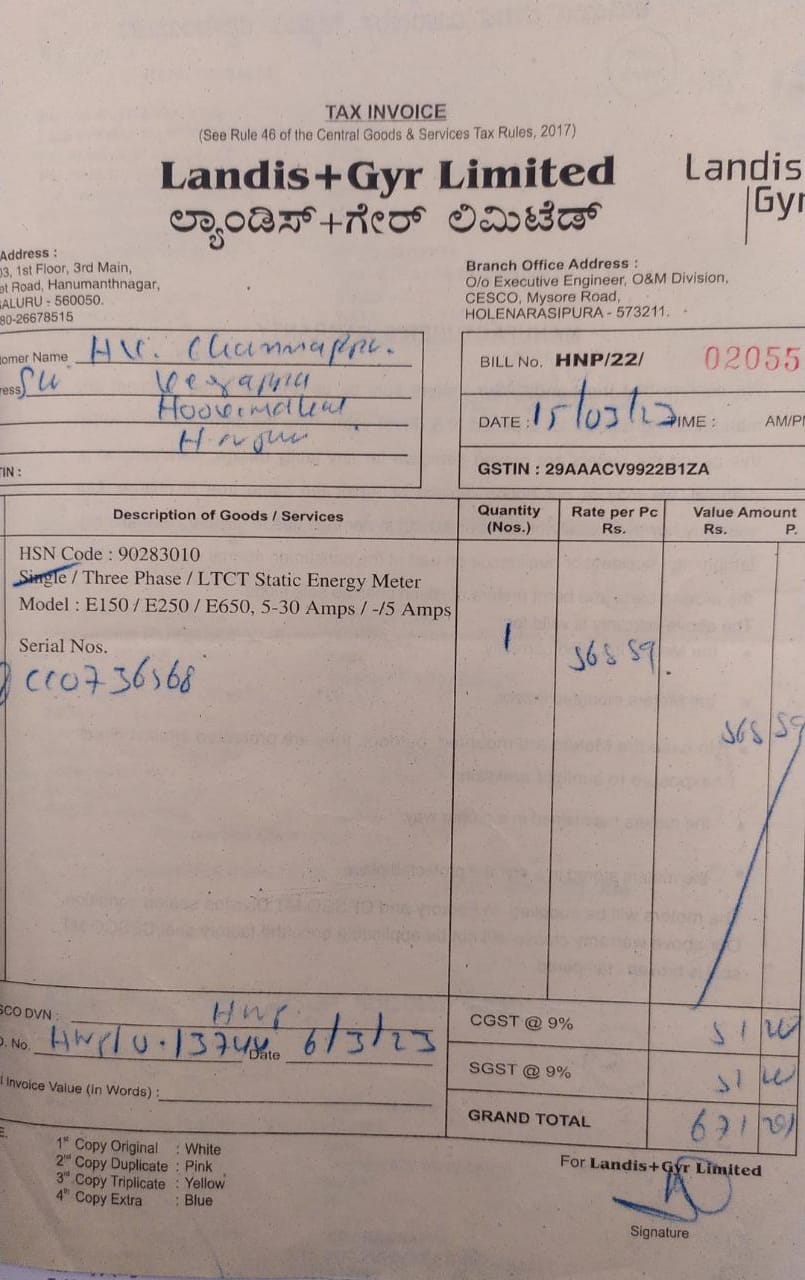 TAX INVOICE
(See Rule 46 of the Central Goods & Services Tax Rules, 2017)
Landis+Gyr Limited
ಲ್ಯಾಂಡಿಸ್+ಗೇರ್ ಲಿಮಿಟೆಡ್
Landis
Gyr
Address :
03, 1st Floor, 3rd Main,
et Road, Hanumanthnagar,
ALURU - 560050.
80-26678515
Branch Office Address :
O/o Executive Engineer, O&M Division,
CESCO, Mysore Road,
HOLENARASIPURA - 573211.
omer Name
ress
TIN :
BILL No. HNP/22/ 02055
DATE : 15/03/23 TIME : AM/P
GSTIN : 29AAACV9922B1ZA
Description of Goods / Services Quantity (Nos.) Rate per Pc Rs. Value Amount Rs. P.
HSN Code : 90283010
Single / Three Phase / LTCT Static Energy Meter
Model : E150 / E250 / E650, 5-30 Amps / -/5 Amps
Serial Nos. 1 568 59
568 59
SCO DVN : HNP
No. Date 6/3/23
Invoice Value (In Words) :
CGST @ 9% 51
SGST @ 9% 51
GRAND TOTAL 671
E.
1st Copy Original : White
2nd Copy Duplicate : Pink
3rd Copy Triplicate : Yellow
4th Copy Extra : Blue
For Landis+Gyr Limited
Signature